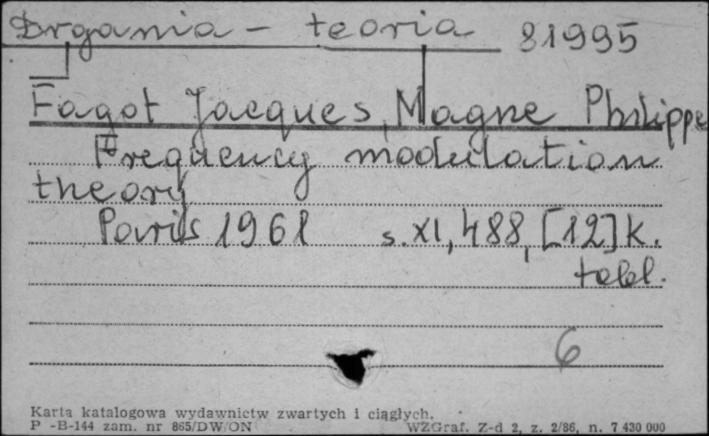 Drgania - teoria 81995
Fagot Jacques, Magne Philippe
Frequency modulation
theory
Paris 1961 s. XI, 488, [12] k.
tabl.
6
Karta katalogowa wydawnictw zwartych i ciągłych.
P -B-144 zam. nr 865/DW/ON WZGraf. Z-d 2, z. 2/86, n. 7 430 000